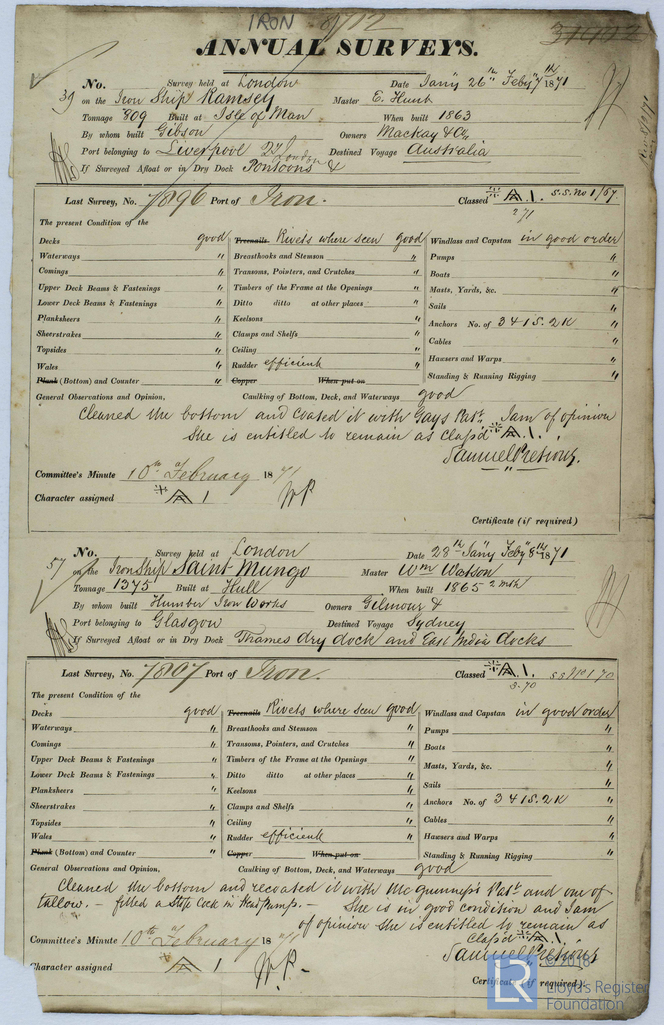 IRON
31922
ANNUAL SURVEYS.
39 No. Survey held at London Date Jany 26th Feby 7th 1871
on the Iron Ship Ramsey Master E. Hunt
Tonnage 809 Built at Isle of Man When built 1863
By whom built Gibson Owners Mackay & Co.
Port belonging to Liverpool Destined Voyage Australia
If Surveyed Afloat or in Dry Dock Pontoons & London
Last Survey, No. 7896 Port of Iron. Classed A 1. S.S. No 1/67.
2/71
The present Condition of the
Decks good Treenails Rivets where seen good Windlass and Capstan in good order
Waterways " Breasthooks and Stemson " Pumps "
Comings " Transoms, Pointers, and Crutches " Boats "
Upper Deck Beams & Fastenings " Timbers of the Frame at the Openings " Masts, Yards, &c. "
Lower Deck Beams & Fastenings " Ditto ditto at other places " Sails "
Planksheers " Keelsons " Anchors No. of 3 4 1 S. 2 K "
Sheerstrakes " Clamps and Shelfs " Cables "
Topsides " Ceiling " Hawsers and Warps "
Wales " Rudder efficient Standing & Running Rigging "
Plank (Bottom) and Counter " Copper When put on
General Observations and Opinion, Caulking of Bottom, Deck, and Waterways good
Cleaned the bottom and coated it with Gays Patt. I am of opinion
She is entitled to remain as Class'd A 1.
Samuel Pretious.
Committee's Minute 10th of February 1871
Character assigned A 1
Certificate (if required)
57 No. Survey held at London Date 28th Jany Feby 8th 1871
on the Iron Ship Saint Mungo Master Wm Watson
Tonnage 1375 Built at Hull When built 1865 2 mth
By whom built Humber Iron Works Owners Gilmour &
Port belonging to Glasgow Destined Voyage Sydney
If Surveyed Afloat or in Dry Dock Thames dry dock and East India docks
Last Survey, No. 7807 Port of Iron. Classed A 1. S.S. No 1 70
3.70
The present Condition of the
Decks good Treenails Rivets where seen good Windlass and Capstan in good order
Waterways " Breasthooks and Stemson " Pumps "
Comings " Transoms, Pointers, and Crutches " Boats "
Upper Deck Beams & Fastenings " Timbers of the Frame at the Openings " Masts, Yards, &c. "
Lower Deck Beams & Fastenings " Ditto ditto at other places " Sails "
Planksheers " Keelsons " Anchors No. of 3 4 1 S. 2 K "
Sheerstrakes " Clamps and Shelfs " Cables "
Topsides " Ceiling " Hawsers and Warps "
Wales " Rudder efficient Standing & Running Rigging "
Plank (Bottom) and Counter " Copper When put on
General Observations and Opinion, Caulking of Bottom, Deck, and Waterways good
Cleaned the bottom and recoated it with Patt. and one of
tallow. - fitted a Stop Cock in Head pumps. - She is in good condition and I am
of opinion she is entitled to remain as
Class'd A 1.
Committee's Minute 10th of February 1871
Samuel Pretious
Character assigned A 1
Certificate (if required)
© 2018
LR Lloyd's Register
Foundation